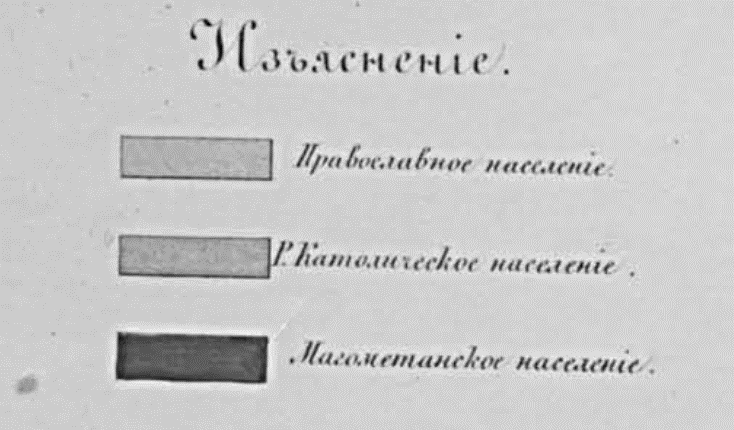 Изъясненіе.
Православное населеніе.
Р. Католическое населеніе.
Магометанское населеніе.